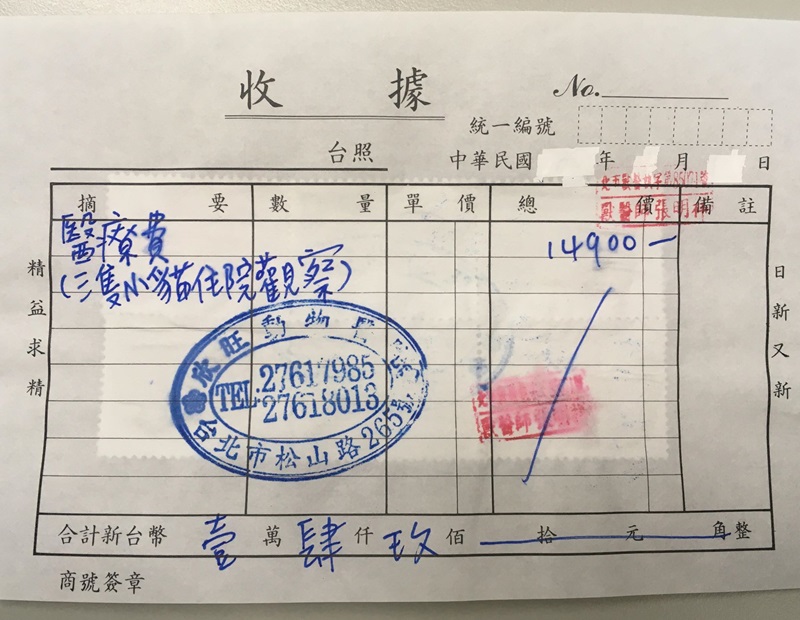 收 據
No.
統一編號
台照
中華民國 年 月 日
獸醫師張明
摘 要 數 量 單 價 總 價 備 註
醫療費
14900—
(三隻小貓住院觀察)
精益求精
日新又新
欣旺動物醫
TEL.27617985
27618013
台北市松山路265號
合計新台幣 壹 萬 肆 仟 玖 佰 拾 元 角整
商號簽章